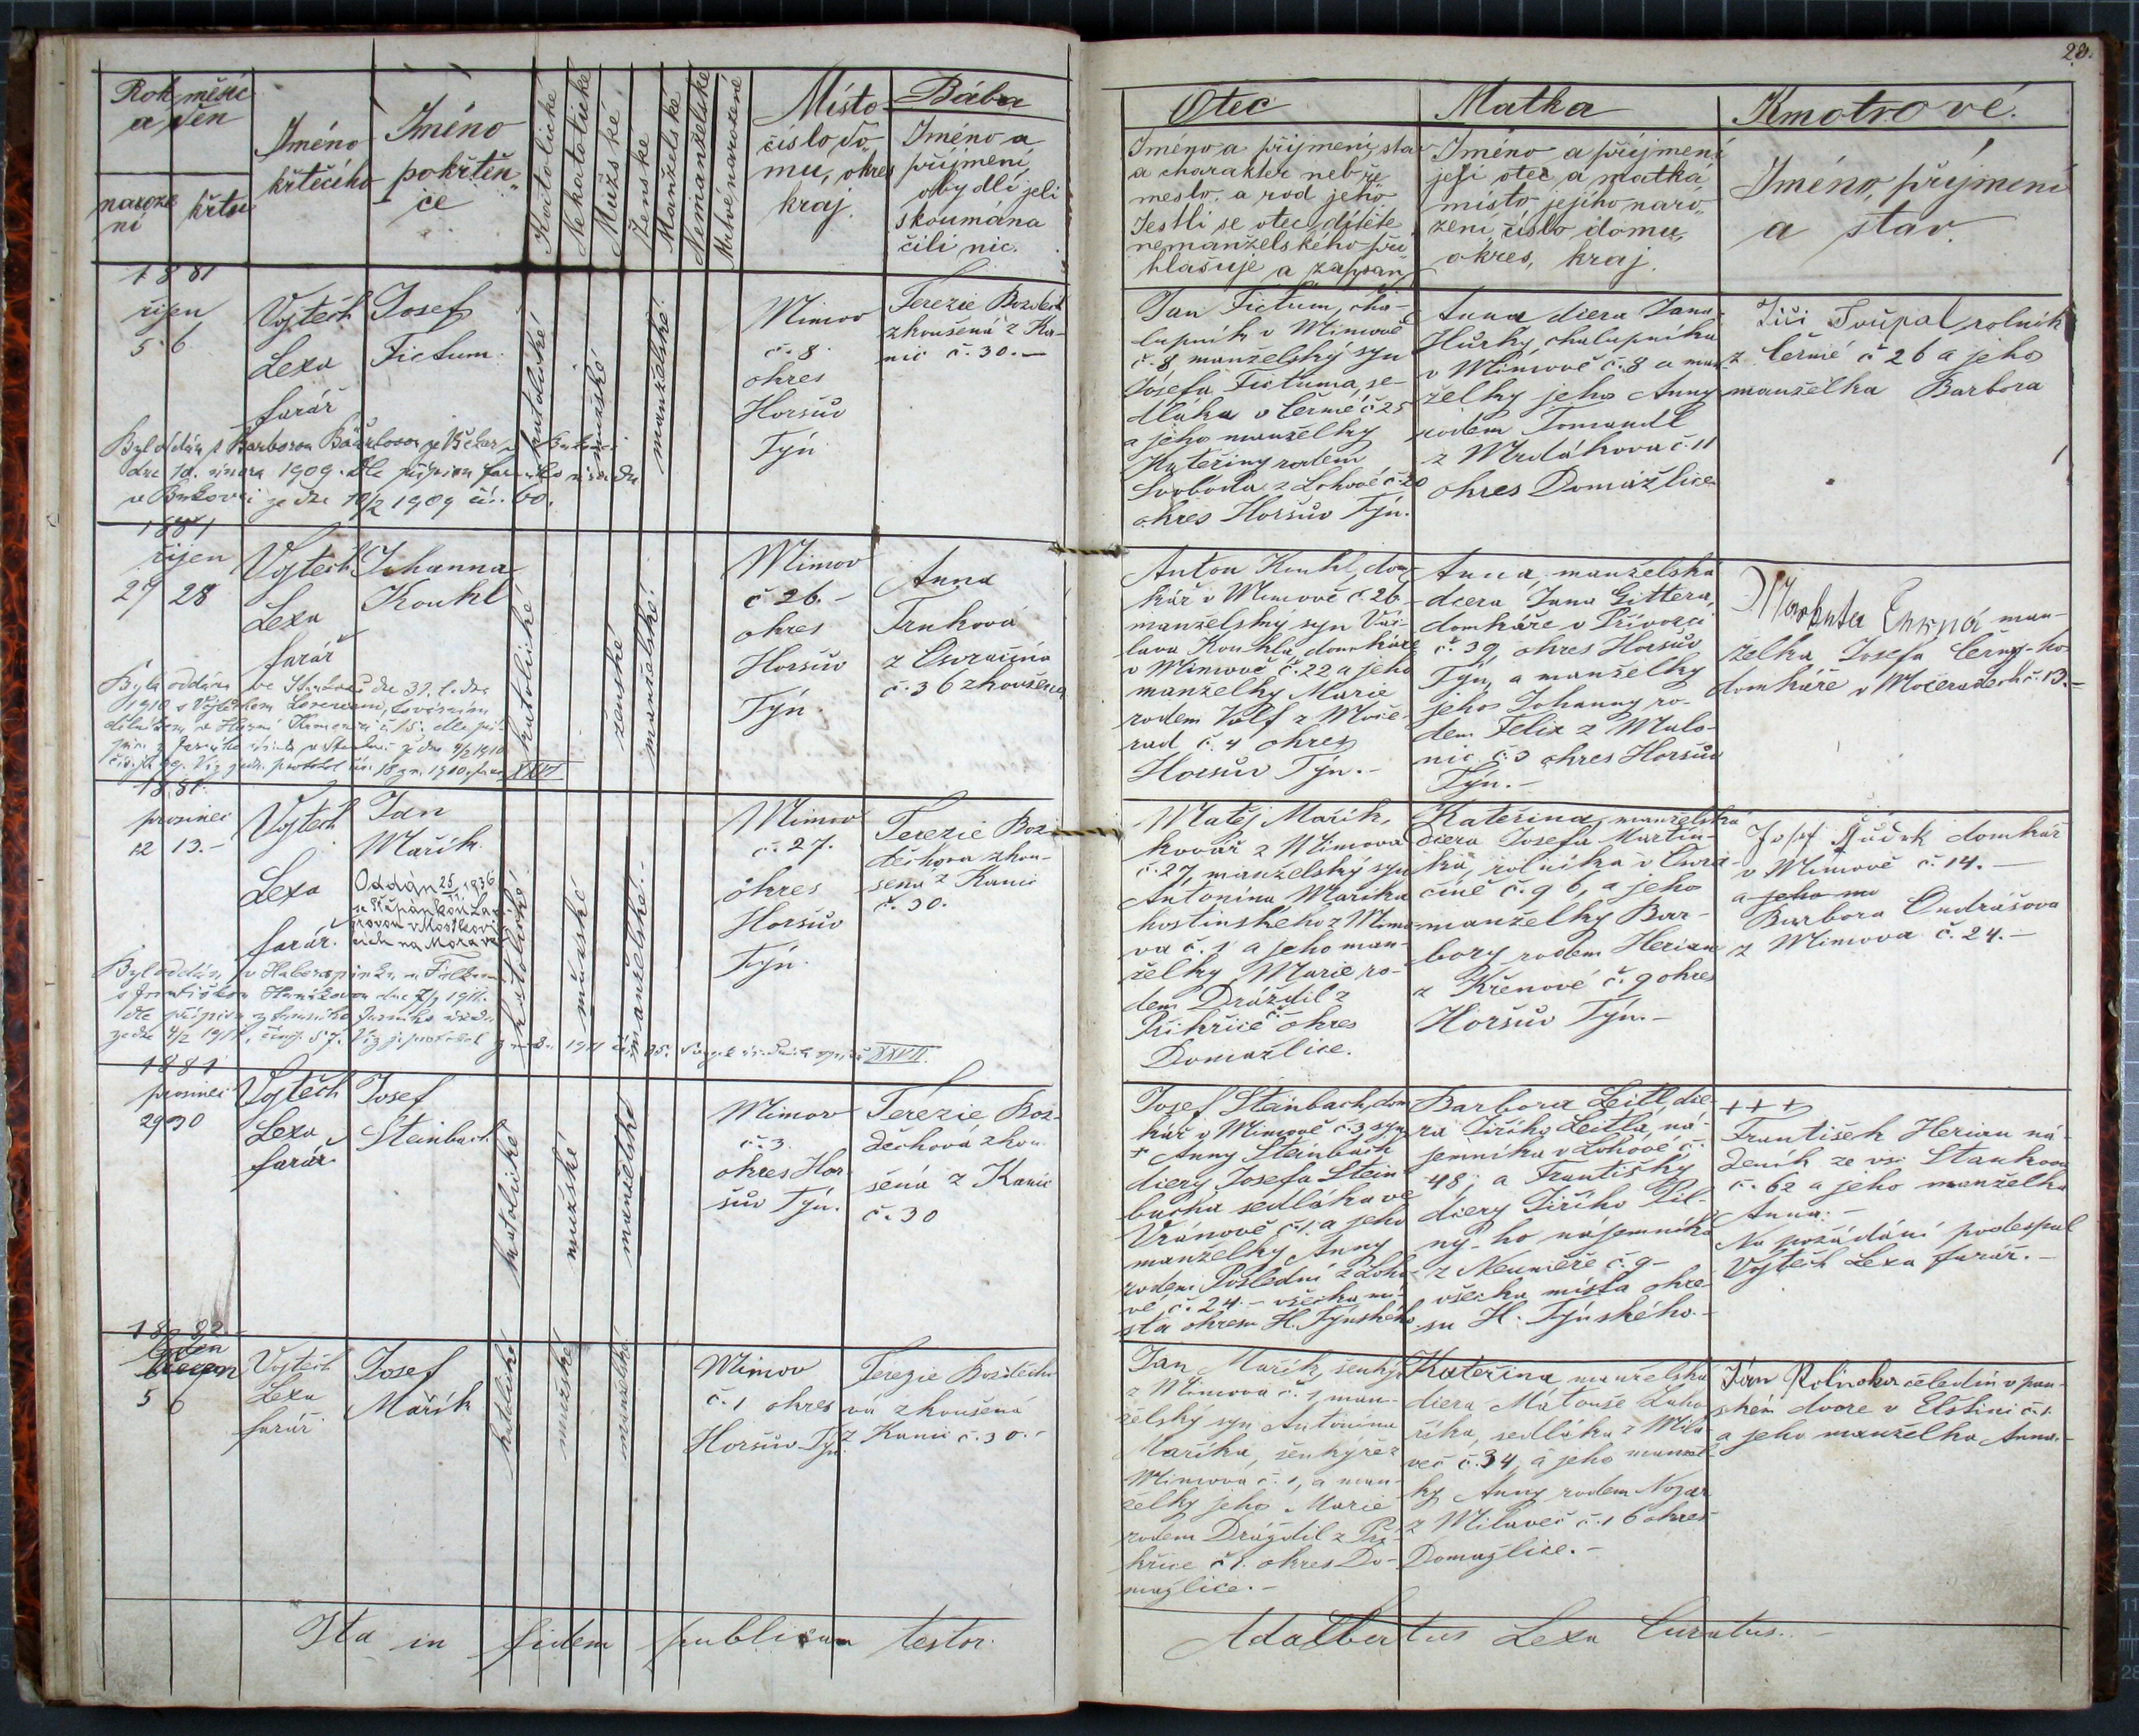 23.
Rok měsíc
a den
naroze
ní
křtu
Jméno
křtěcího
Jméno
pokřtěn„
če
Katolické
Nekatolické
Mužské
Ženské
Manželské
Nemanželské
Mrtvé narozené
Místo
číslo do„
mu, okres
kraj.
Bába
Jméno a
příjmení,
obydlí jeli
skoumána
čili nic.
Otec
Jméno a příjmení, stav
a charakter neb ře„
meslo, a rod jeho
Jestli se otec dítěte
nemanželského při„
hlašuje a zapsán
Matka
Jméno a příjmení
její otec a matka
místo jejího naro„
zení, číslo domu,
okres, kraj.
Kmotrové.
Jméno, příjmení
a stav.
1881
říjen
5 6
Vojtěch
Lexa
farář
Josef
Fictum.
katolické
mužské
manželské!
Mimov
č. 8.
okres
Horšův
Týn
Terezie Bozděch
zkoušená z Ka-
nic č. 30.—
Jan Fictum, cha-
lupník v Mimově
č. 8, manželský syn
Josefa Fictuma, se-
dláka v Černé č 25
a jeho manželky
Kateřiny rodem
Svoboda z Lohové č 20
okres Horšův Týn.
Anna dcera Jana
Hůrky, chalupníka
v Mimově č. 8 a man-
želky jeho Anny
rodem Tomandl
z Mrdákova č. 11
okres Domažlice
Jiří Toupal, rolník
z Černé č 26 a jeho
manželka Barbora
Byl oddán s Barborou
dne 10. února 1909. Dle přípisu farního úřadu
v Bukovci ze dne 10/2 1909 čís. 60.
1881
říjen
27 28
Vojtěch
Lexa
farář
Johanna
Kouhl
katolické
ženské
manželské!
Mimov
č 26.-
okres
Horšův
Týn
Anna
Trnková
z Osvračína
č. 36 zkoušená
Anton Kouhl, dom-
kář v Mimově č. 26-
manželský syn Vác-
lava Kouhla domkáře
v Mimově č. 22 a jeho
manželky Marie
rodem Volf z Moče-
rad č. 4 okres
Horšův Týn.-
Anna, manželská
dcera Jana Gittera,
domkáře v Přívozci
č. 39 okres Horšův
Týn, a manželky
jeho Johanny ro-
dem Felix z Malo-
nic č. 3 okres Horšův
Týn.-
Markéta man-
želka Josefa Černý-ho
domkáře v Močeradech č. 13.-
Byla oddána ve Stankově dne 31. ledna
1910 s Vojtěchem
XXVI
1881.
prosinec
12 13.-
Vojtěch
Lexa
farář.
Jan
Mařík.
Oddán 25/ 1936
se Štěpánkou La-
v Mostkovi-
cích na Moravě
katolické
mužské
manželské.
Mimov
č. 27.
okres
Horšův
Týn.
Terezie Boz-
děchova zkou-
šená z Kanic
č. 30.
Matěj Mařík,
kovář z Mimova
č. 27, manželský syn
Antonína Maříka
hostinského z Mimo-
va č. 1 a jeho man-
želky Marie ro-
dem Dráždil z
Příkřice č okres
Domažlice.
Kateřina, manželská
dcera Josefa Martín-
ka, rolníka v Osvra-
číně č. 96, a jeho
manželky Bar-
bory rodem Herian
z Křenové č. 9 okres
Horšův Týn.-
Josef domkář
v Mimově č. 14.—
a jeho ma
Barbora Ondrášova
z Mimova č. 24.—
Byl oddán v
s Františkou Hanákovou dne 7/2 1911.
dle přípisu
ze dne 4/2 1911,
XXVII.
1881
prosinec
29 30
Vojtěch
Lexa
farář.
Josef
Steinbach
katolické
mužské
manželské
Mimov
č. 3.
okres Hor
šův Týn.
Terezie Boz-
děchová zkou-
šená z Kanic
č. 30
Josef Steinbach, dom-
kář v Mimově č. 3 syn
+ Anny Steinbach
dcery Josefa Stein
bacha sedláka ve
Vránově č. 1. a jeho
manželky Anny
rodem Poslední z Loho-
vé č. 24.- všecka mí-
sta okresu H. Týnského
Barbora Leitl dce-
ra Jiřího Leitla, ná-
jemníka v Lohové č.
48; a Františky
dcery Jiřího Pil-
ný-ho nájemníka
z Neuměře č. 9-
všecka místa okre-
su H. Týnského.-
+++
František Herian ná-
deník ze vsi Stankova
č. 62 a jeho manželka
Anna.-
Na požádání podepsal
Vojtěch Lexa farář.-
1882
leden
březen
5 6
Vojtěch
Lexa
farář
Josef
Mařík
katolické
mužské
manželské
Mimov
č. 1 okres
Horšův Týn.
Terezie Bozděcho
vá zkoušená
z Kanic č. 30.-
Jan Mařík, šenkýř
z Mimova č. 1 man-
želský syn Antonína
Maříka, šenkýře z
Mimova č. 1, a man-
želky jeho Marie
rodem Dráždil z Pří-
křice č 1. okres Do-
mažlice.-
Kateřina manželská
dcera Matouše Zaho
říka, sedláka z Mila-
več č. 34, a jeho manžel-
ky Anny rodem Nozar
z Milaveč č. 16 okres
Domažlice.-
Ján čeledín v pan-
ském dvoře v Elstini č. 1.
a jeho manželka Anna.-
Ita in fidem publicam testor.
Adalbertus Lexa Curatus.-